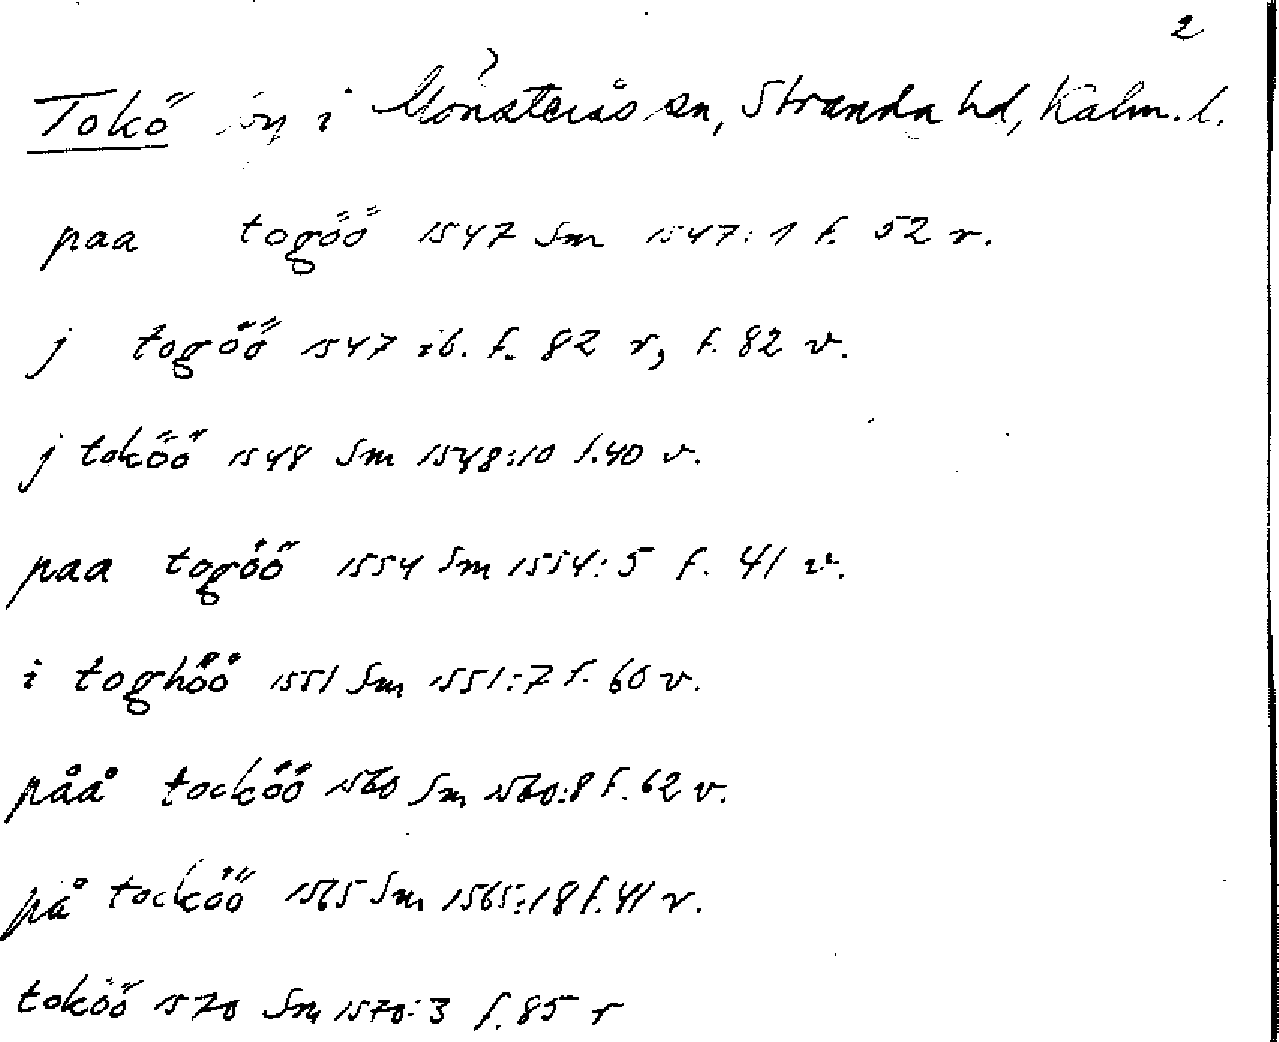 2
Tokö by i Mönsterås sn, Stranda hd, Kalm. l.
paa togöö 1547 Sm 1547:1 f. 52 r.
j togöö 1547 ib. f. 82 r, f. 82 v.
j toköö 1548 Sm 1548:10 f. 40 v.
paa togöö 1554 Sm 1554:5 f. 41 v.
i toghöö 1551 Sm 1551:7 f. 60 v.
påå tocköö 1560 Sm 1560:8 f. 62 v.
på tocköö 1565 Sm 1565:18 f. 41 r.
toköö 1570 Sm 1570:3 f. 85 r